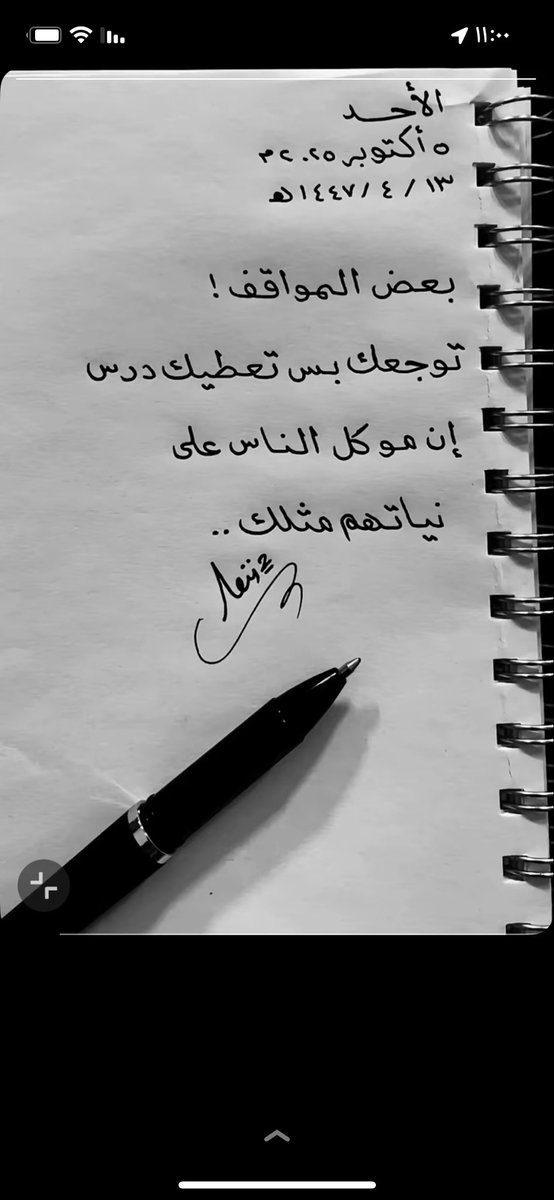 ١١:٠٠
الأحد
٥ أكتوبر ٢٠٢٥م
١٣ / ٤ / ١٤٤٧هـ
بعض المواقف !
توجعك بس تعطيك درس
إن مو كل الناس على
نياتهم مثلك ..